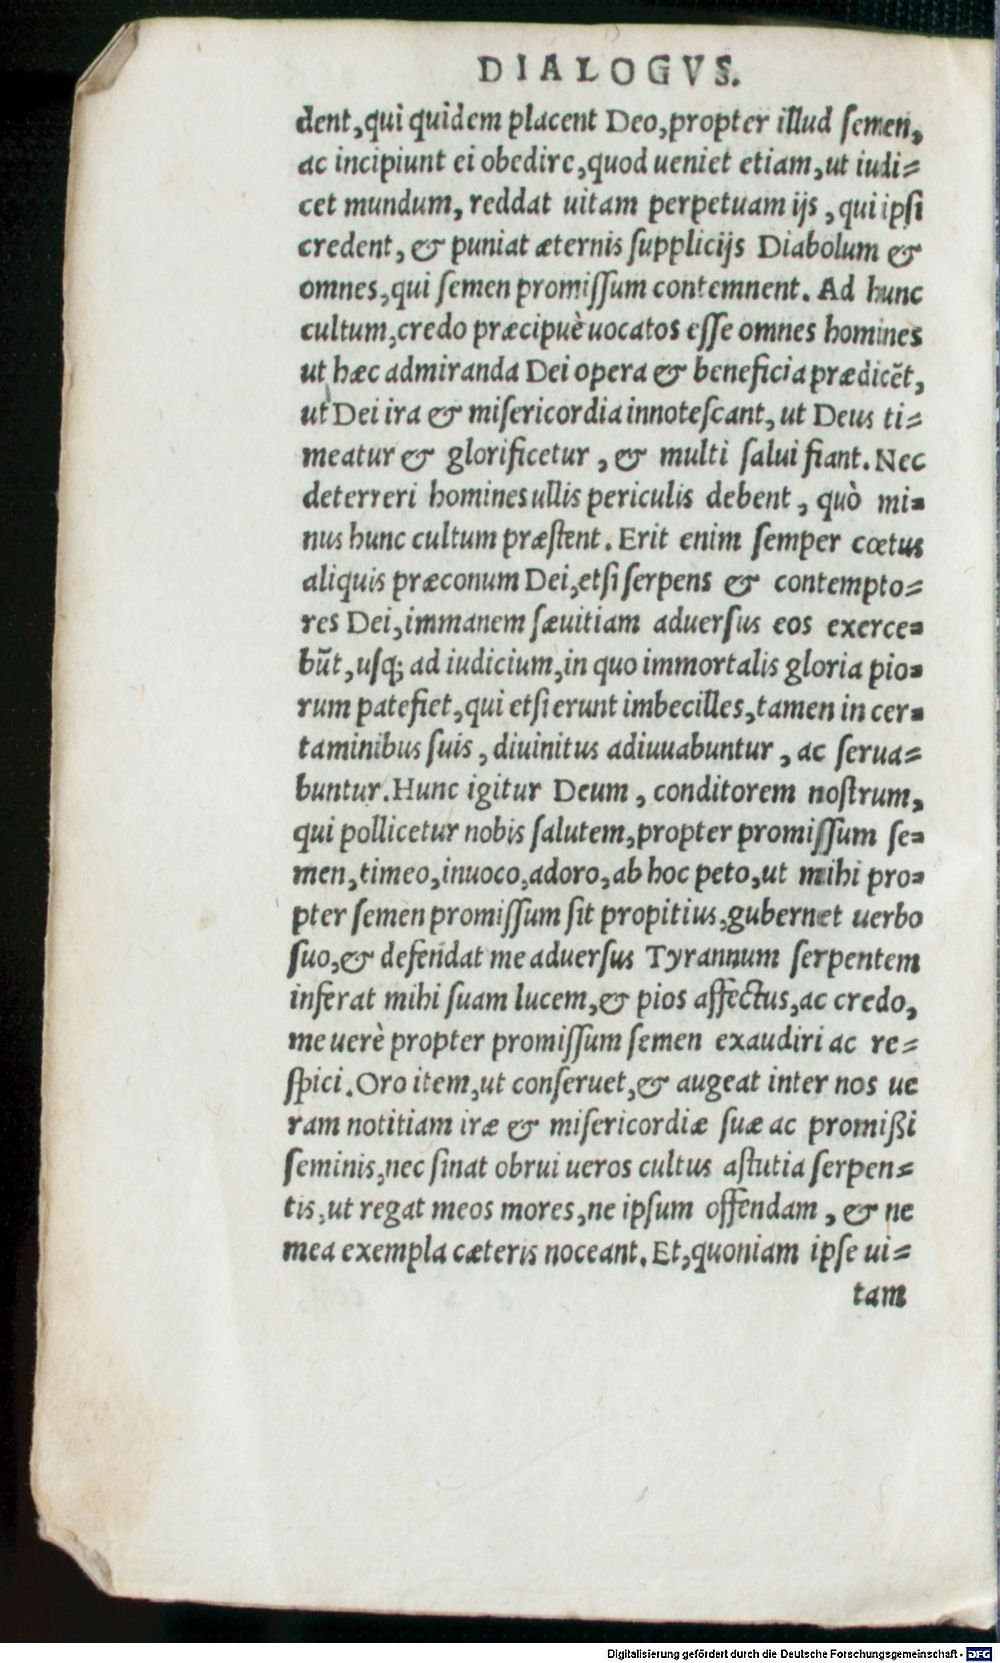 DIALOGVS.
dent, qui quidem placent Deo, propter illud ſemen,
ac incipiunt ei obedire, quod ueniet etiam, ut iudi=
cet mundum, reddat uitam perpetuam ijs, qui ipſi
credent, & puniat æternis ſupplicijs Diabolum &
omnes, qui ſemen promiſſum contemnent. Ad hunc
cultum, credo præcipuè uocatos eſſe omnes homines
ut hæc admiranda Dei opera & beneficia prædicẽt,
ut Dei ira & miſericordia innoteſcant, ut Deus ti=
meatur & glorificetur, & multi ſalui fiant. Nec
deterreri homines ullis periculis debent, quò mi=
nus hunc cultum præſtent. Erit enim ſemper cœtus
aliquis præconum Dei, etſi ſerpens & contempto=
res Dei, immanem ſæuitiam aduerſus eos exerce=
bũt, uſq; ad iudicium, in quo immortalis gloria pio=
rum patefiet, qui etſi erunt imbecilles, tamen in cer=
taminibus ſuis, diuinitus adiuuabuntur, ac ſerua=
buntur. Hunc igitur Deum, conditorem noſtrum,
qui pollicetur nobis ſalutem, propter promiſſum ſe=
men, timeo, inuoco, adoro, ab hoc peto, ut mihi pro=
pter ſemen promiſſum ſit propitius, gubernet uerbo
ſuo, & defendat me aduerſus Tyrannum ſerpentem
inferat mihi ſuam lucem, & pios affectus, ac credo,
me uerè propter promiſſum ſemen exaudiri ac re=
ſpici. Oro item, ut conſeruet, & augeat inter nos ue
ram notitiam iræ & miſericordiæ ſuæ ac promißi
ſeminis, nec ſinat obrui ueros cultus aſtutia ſerpen=
tis, ut regat meos mores, ne ipſum offendam, & ne
mea exempla cæteris noceant. Et, quoniam ipſe ui=
tam
Digitalisierung gefördert durch die Deutsche Forschungsgemeinschaft - DFG